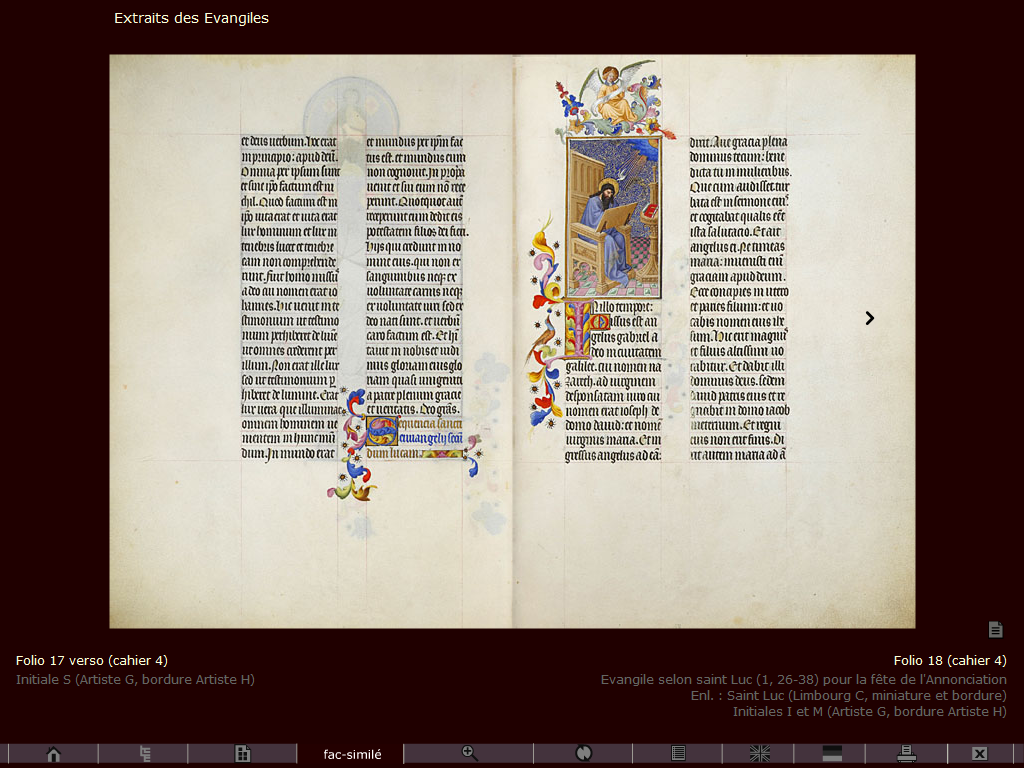 Extraits des Evangiles
et deus uerbum. Hoc erat
in principio: apud deū.
Omnia per ipsum sunt
et sine ipō factum est ni
chil. Quod factum est in
ipō uita erat et uita erat
lux hominum et lux in
tenebris lucet et tenebre
eam non comprehende
runt. Fuit homo missus
a deo cui nomen erat io
hannes. Hic uenit in te
stimonium ut testimo
nium perhiberet de lumīe
ut omnes crederent per
illum. Non erat ille lux
sed ut testimonium p
hiberet de lumine. Erat
lux uera que illuminat
omnem hominem ue
nientem in hunc mū
dum. In mundo erat
et mundus per ipm fac
tus est. et mundus eum
non cognouit. In propa
uenit et sui eum nō rece
perunt. Quotquot autē
receperunt eum dedit eis
potestatem filios dei fieri.
Hijs qui credunt in no
mine eius. qui non ex
sanguinibus neqz ex
uoluntate carnis neqz
ex uoluntate uiri sed ex
deo nati sunt. et uerbū
caro factum est. Et hī
tauit in nobis et uidi
mus gloriam eius glo
riam quasi unigeniti
a patre plenum gracie
et ueritatis. Deo grās.
Sequencia sancti
euuangelij secū
dum lucam.
In illo tempore:
Missus est an
gelus gabriel a
deo in ciuitatem
galilee. cui nomen na
zareth. ad uirginem
desponsatam uiro cui
nomen erat ioseph de
domo dauid: et nomē
uirginis maria. Et in
gressus angelus ad eā:
dixit. Aue gracia plena
dominus tecum: bene
dicta tu in mulieribus.
Que cum audisset tur
bata est in sermone eius
et cogitabat qualis eēt
ista salutacio. Et ait
angelus ei. Ne timeas
maria: inuenisti enī
graciam apud deum.
Ecce concipies in utero
et paries filium: et uo
cabis nomen eius ihe
sum. Hic erit magnus
et filius altissimi uo
cabitur. Et dabit illi
dominus deus. sedem
dauid patris eius et re
gnabit in domo iacob
in eternum. Et regni
eius non erit finis. Di
xit autem maria ad ā
Folio 17 verso (cahier 4)
Initiale S (Artiste G, bordure Artiste H)
Folio 18 (cahier 4)
Evangile selon saint Luc (1, 26-38) pour la fête de l'Annonciation
Enl. : Saint Luc (Limbourg C, miniature et bordure)
Initiales I et M (Artiste G, bordure Artiste H)
fac-similé